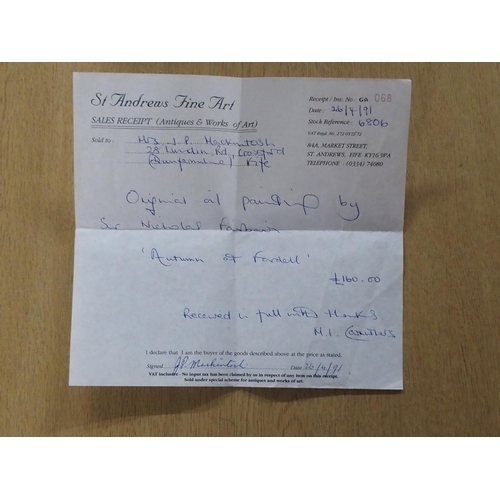 St Andrews Fine Art
SALES RECEIPT (Antiques & Works of Art)
Receipt / Inv. No: GA 068
Date: 26/4/91
Stock Reference: 6806
VAT Regd. No: 272 0372 72
84A, MARKET STREET,
ST. ANDREWS, FIFE KY16 9PA
TELEPHONE: (0334) 74080
Sold to: Mrs J.P. Mackintosh
28 Rd, Crossford
(Dunfermline) Fife
Original oil painting by
Sir Nicholas Fairbairn
'Autumn at Fordell'
£160.00
Received in full with thanks
N.I. Carruthers
I declare that I am the buyer of the goods described above at the price as stated.
Signed J.P. Mackintosh Date 26/4/91
VAT inclusive - No input tax has been claimed by us in respect of any item on this receipt.
Sold under special scheme for antiques and works of art.